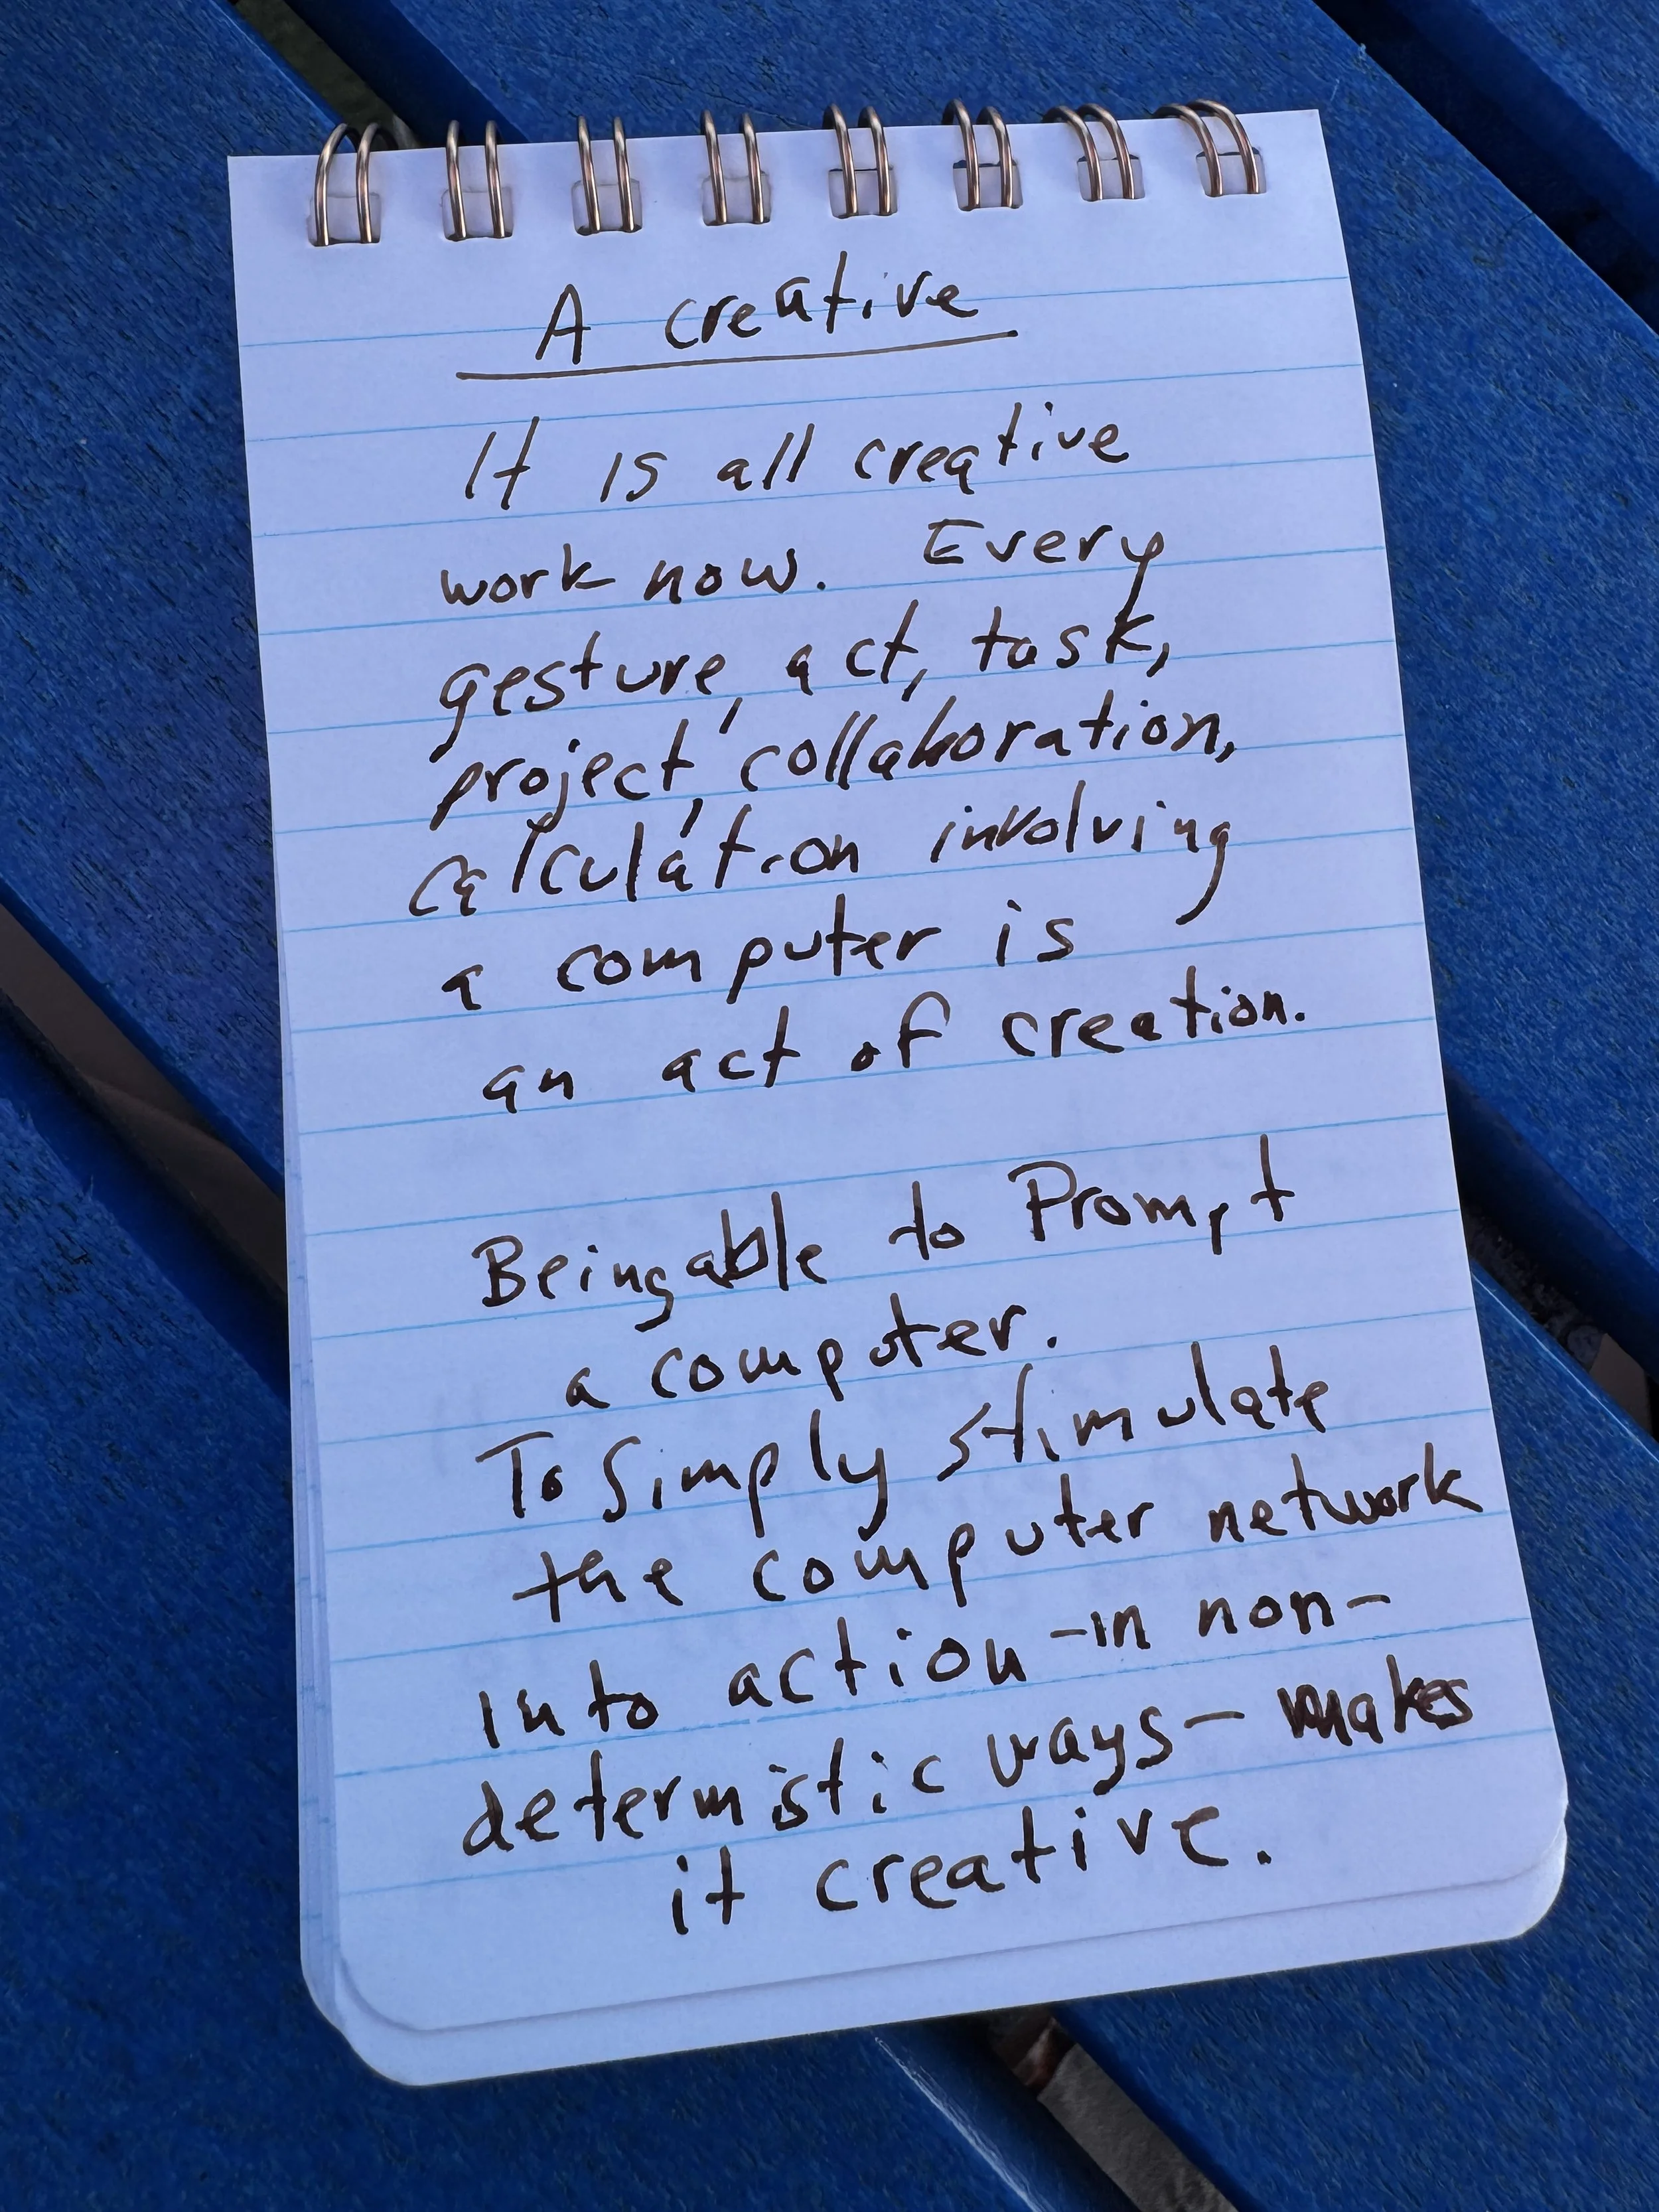 A creative
It is all creative
work now. Every
gesture, act, task,
project, collaboration,
calculation involving
a computer is
an act of creation.
Being able to Prompt
a computer.
To Simply stimulate
the computer network
into action - in non-
determistic ways - makes
it creative.